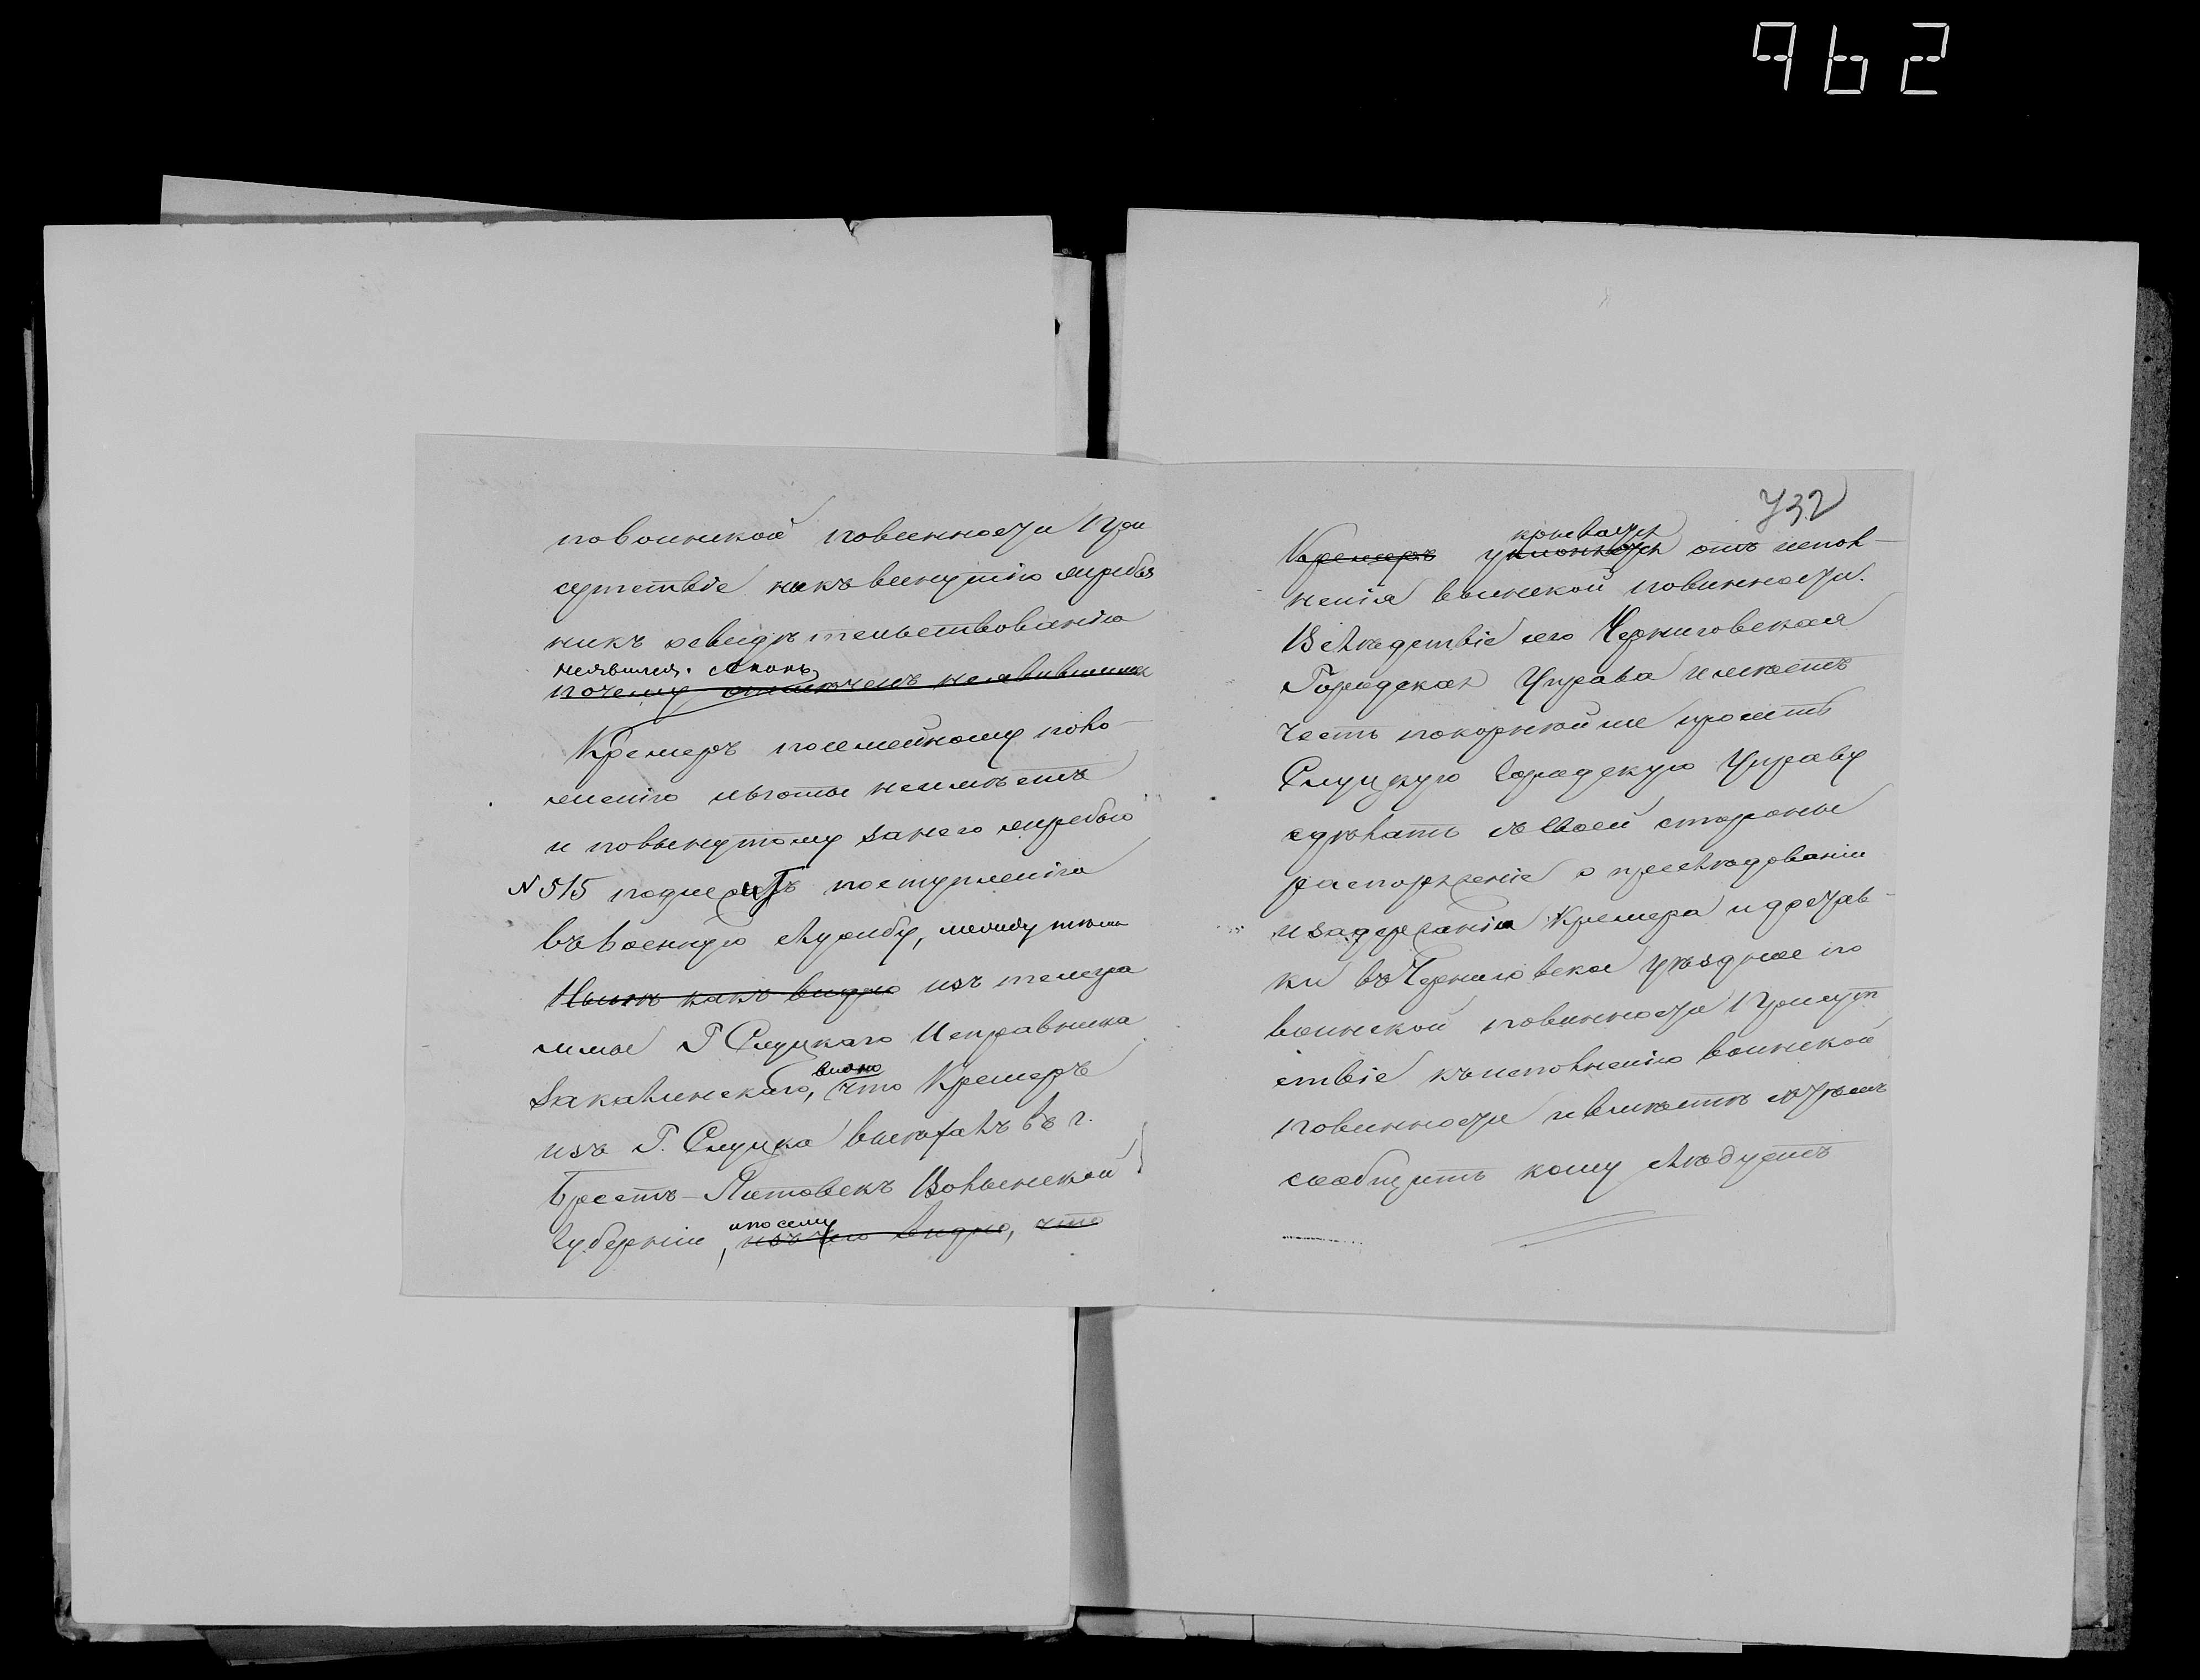 962
повоинской повинности При
сутствіе никъ вынутію жребья
никъ освидѣтельствованію
неявился. Акакъ
почему отмѣченъ неявившимся
Кремеръ посемейному поло-
женію льготы неимѣетъ
и повынутому занего жребью
N 515 подлежитъ поступленію
въ военную службу, между тѣмъ
Нынѣ какъ видно изъ телегра
ммы Г Слуцкаго Исправника
Закалинскаго, что Кремеръ
видно
изъ Г. Слуцка выѣхалъ въ г.
Брестъ-Литовскъ Волынской
губерніи, изъ чего видно, что
ипосему
732
крывается
Кремеръ уклоняется отъ испол-
ненія воинской повинности.
Вслѣдствіе сего Черниговская
Городская Управа имѣетъ
честь покорнѣйше просить
Слуцкую городскую Управу
сдѣлать съ своей стороны
распоряженіе о преслѣдованіи
изадержаніи Кремера идостав-
ки въ Черниговское уѣздное по
воинской повинности Присут
ствіе къисполненію воинской
повинности ивмѣстѣ съ тѣмъ
сообщить кому слѣдуетъ